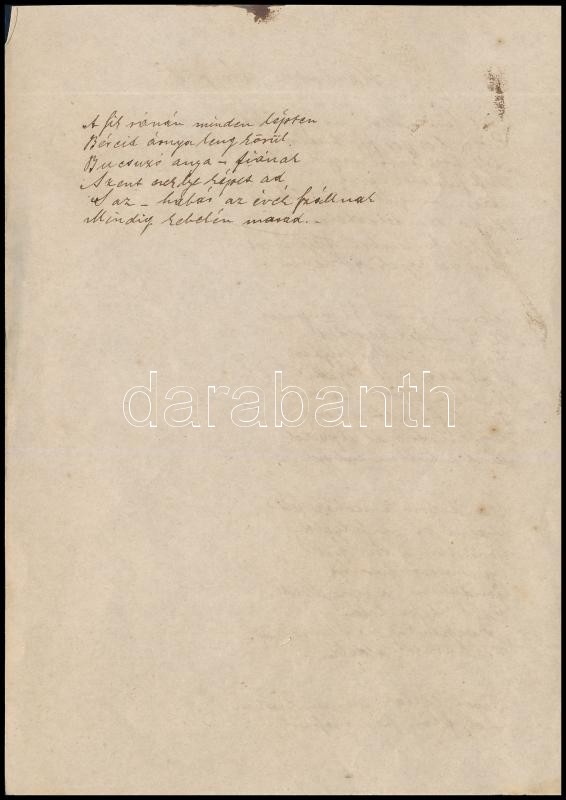 A sík rónán minden lépten
Bérceid árnya leng körül.
Bucsuzó anya – fiának
Szent ereklye képet ad
S az – habár az évek szállnak
Mindig kebelén marad. –
darabanth